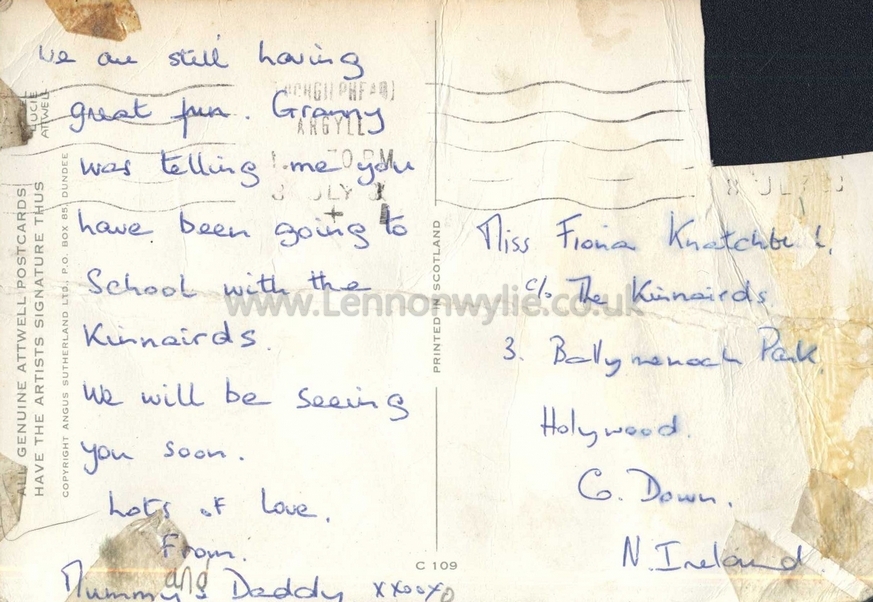 We are still having
great fun. Granny
was telling me you
have been going to
School with the
Kinnairds.
We will be seeing
you soon.
Lots of love.
From.
Mummy & Daddy xxooxo
and
LUCIE
ATTWELL
ALL GENUINE ATTWELL POSTCARDS
HAVE THE ARTISTS SIGNATURE THUS
COPYRIGHT ANGUS SUTHERLAND LTD., P.O. BOX 85, DUNDEE
LOCHGILPHEAD
ARGYLL
30 PM
8 JULY
PRINTED IN SCOTLAND
8 JULY
Miss Fiona Knatchbull.
c/o The Kinnairds
3. Ballymenoch Park,
Holywood.
Co. Down.
N. Ireland
C 109
www.Lennonwylie.co.uk